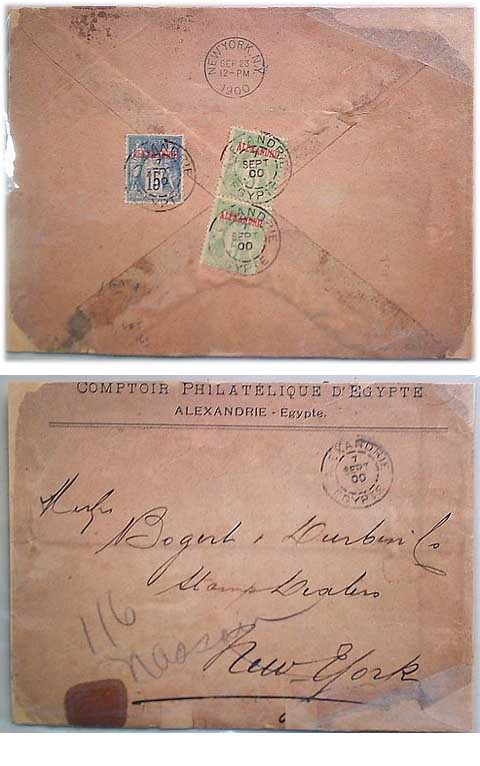 NEW YORK, N.Y.
SEP 23
12-PM
1900
ALEXANDRIE
15
ALEXANDRIE
7
SEPT
00
EGYPTE
ALEXANDRIE
ALEXANDRIE
7
SEPT
00
EGYPTE
COMPTOIR PHILATÉLIQUE D'EGYPTE
ALEXANDRIE - Egypte.
ALEXANDRIE
7
SEPT
00
EGYPTE
Messrs
Bogert & Durbin Co
Stamp Dealers
116
Nassau
New-York